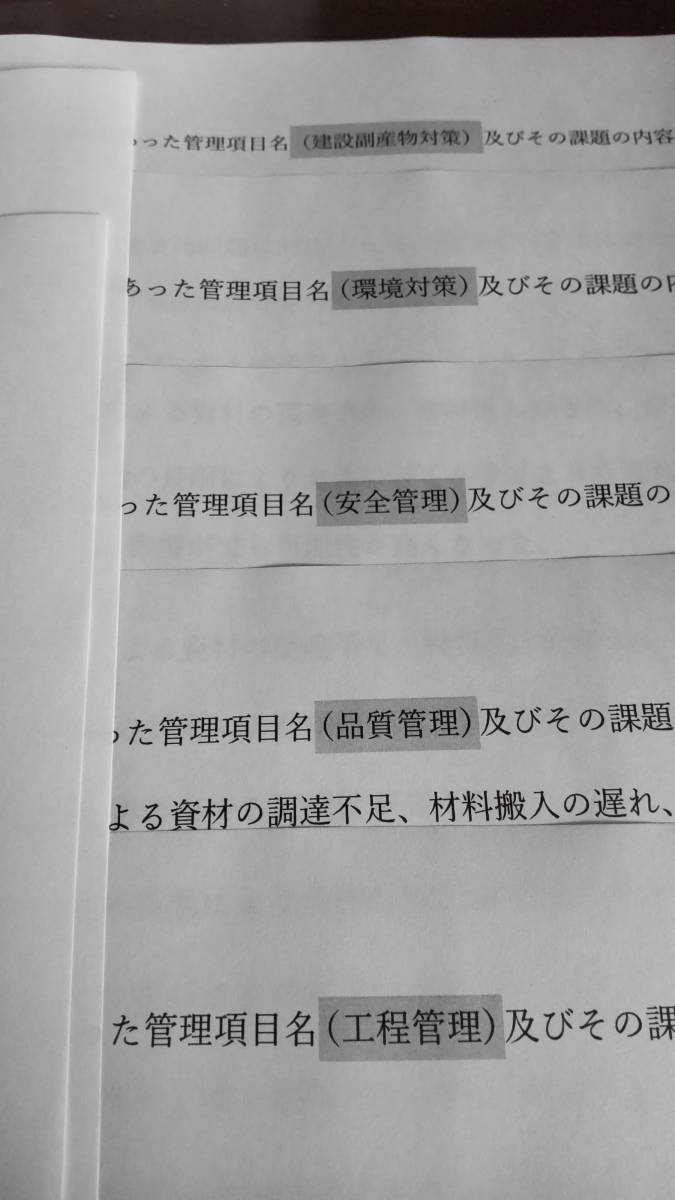 った管理項目名（建設副産物対策）及びその課題の内容
あった管理項目名（環境対策）及びその課題の内
った管理項目名（安全管理）及びその課題の
った管理項目名（品質管理）及びその課題
よる資材の調達不足、材料搬入の遅れ、
た管理項目名（工程管理）及びその課